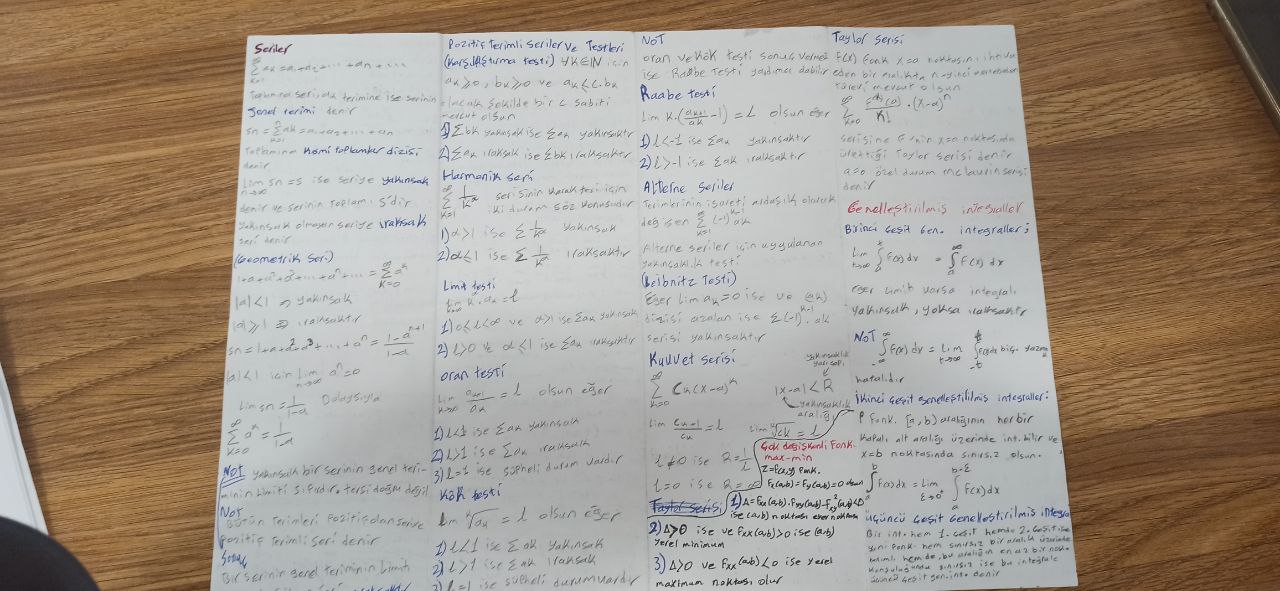 Seriler
∑ ak = a1+a2+...+an+...
k=1
toplamına seri, ak terimine ise serinin
genel terimi denir
sn = ∑ ak = a1+a2+...+an
toplamına kısmi toplamlar dizisi
denir
Lim sn = s ise seriye yakınsak
n→∞
denir ve serinin toplamı s'dir
yakınsak olmayan seriye ıraksak
seri denir
(Geometrik Seri)
1+a+a²+...+aⁿ+... = ∑ aᵏ
k=0
|a|<1 ⇒ yakınsak
|a|≥1 ⇒ ıraksaktır
sn = 1+a+a²+a³+...+aⁿ = 1-aⁿ⁺¹ / 1-a
|a|<1 için Lim aⁿ=0
n→∞
Lim sn = 1/1-a Dolayısıyla
∑ aᵏ = 1/1-a
k=0
NOT yakınsak bir serinin genel teri-
minin limiti sıfırdır, tersi doğru değil
NOT
Bütün terimleri pozitif olan seriye
pozitif terimli seri denir
Sonuç
Bir serinin genel teriminin limit
Pozitif Terimli Seriler ve Testleri
(Karşılaştırma testi) ∀k∈IN için
ak≥0, bk≥0 ve ak≤c.bk
olacak şekilde bir c sabiti
mevcut olsun
1) ∑bk yakınsak ise ∑ak yakınsaktır
2) ∑ak ıraksak ise ∑bk ıraksaktır
Harmonik seri
∑ 1/k^α serisinin karakteri için
k=1 iki durum söz konusudur
1) α>1 ise ∑ 1/k^α yakınsak
2) α≤1 ise ∑ 1/k^α ıraksaktır
Limit testi
Lim k^α.ak = l
1) 0≤l<∞ ve α>1 ise ∑ak yakınsaktır
2) l>0 ve α≤1 ise ∑ak ıraksaktır
oran testi
Lim ak+1/ak = l olsun eğer
k→∞
1) l<1 ise ∑ak yakınsak
2) l>1 ise ∑ak ıraksak
3) l=1 ise şüpheli durum vardır
Kök testi
Lim ᵏ√ak = l olsun eğer
1) l<1 ise ∑ak yakınsak
2) l>1 ise ∑ak ıraksak
3) l=1 ise şüpheli durum vardır
NOT
oran ve kök testi sonuç vermez
ise Raabe testi yardımcı olabilir
Raabe testi
Lim k.(ak+1/ak -1) = l olsun eğer
1) l<-1 ise ∑ak yakınsaktır
2) l>-1 ise ∑ak ıraksaktır
Alterne Seriler
Terimlerinin işareti ardaşık olarak
değişen ∑ (-1)ᵏ⁻¹ ak
k=1
Alterne seriler için uygulanan
yakınsaklık testi
(Leibnitz Testi)
Eğer Lim ak=0 ise ve (ak)
dizisi azalan ise ∑(-1)ᵏ⁻¹.ak
serisi yakınsaktır
Kuvvet serisi
∑ Ck(x-a)ᵏ
k=0
yakınsaklık
yarıçapı
|x-a|<R
yakınsaklık
aralığı
Lim ck+1/ck = l Lim ᵏ√ck = l
l≠0 ise R=1/l
l=0 ise R=∞
Taylor serisi
Çok değişkenli Fonk.
max-min
Z=f(x,y) Fonk.
Fx(a,b)=Fy(a,b)=0 olsun
1) Δ=Fxx(a,b).Fyy(a,b)-F²xy(a,b)<0
ise (a,b) noktası eyer noktası
2) Δ>0 ise ve Fxx(a,b)>0 ise (a,b)
yerel minimum
3) Δ>0 ve Fxx(a,b)<0 ise yerel
maksimum noktası olur
Taylor serisi
f(x) Fonk x=a noktasını ihtiva
eden bir aralıkta n. yinci mertebeden
türevi mevcut olsun
∑ f⁽ᵏ⁾(a)/k! .(x-a)ⁿ
k=0
serisine f'nin x=a noktasında
ürettiği Taylor serisi denir
a=0 özel durum mclaurin serisi
denir
Genelleştirilmiş integraller
Birinci Çeşit Gen. integraller;
Lim ∫ F(x) dx = ∫ F(x) dx
t→∞ a a
eğer limit varsa integral
yakınsak, yoksa ıraksaktır
NOT
∫ F(x) dx = Lim ∫ F(x)dx biçi. yazmak
t→∞
hatalıdır
İkinci çeşit genelleştirilmiş integraller:
f Fonk. [a,b) aralığının her bir
kapalı alt aralığı üzerinde int.bilir ve
x=b noktasında sınırsız olsun.
∫ f(x)dx = Lim ∫ F(x)dx
ε→0⁺
üçüncü Çeşit Genelleştirilmiş integral
Bir int. hem 1. çeşit hemde 2. çeşit ise
yani Fonk. hem sınırsız bir aralık üzerinde
tanımlı hem de, bu aralığın en az bir nok-
komşuluğunda sınırsız ise bu integrale
üçüncü çeşit gen. int. denir